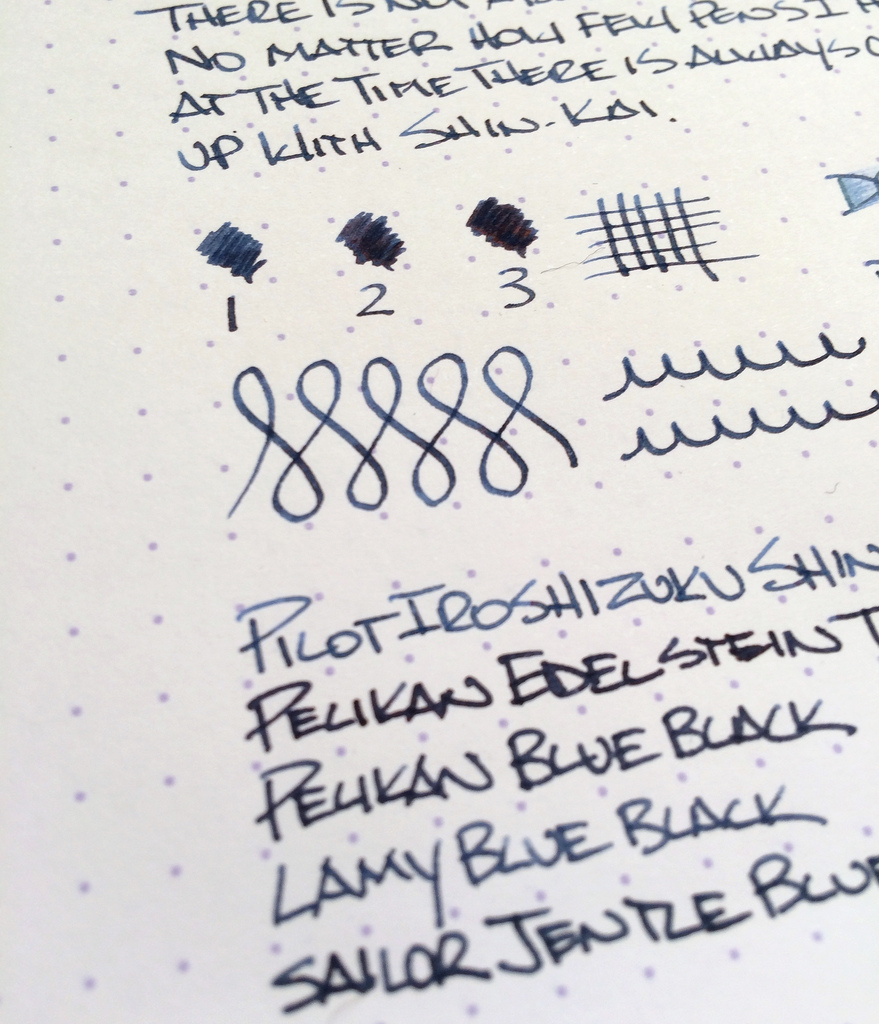 THERE IS NOT
NO MATTER HOW FEW PENS I
AT THE TIME THERE IS ALWAYS
UP WITH SHIN-KAI.
1 2 3
PILOT IROSHIZUKU SHIN
PELIKAN EDELSTEIN T
PELIKAN BLUE BLACK
LAMY BLUE BLACK
SAILOR JENTLE BLUE